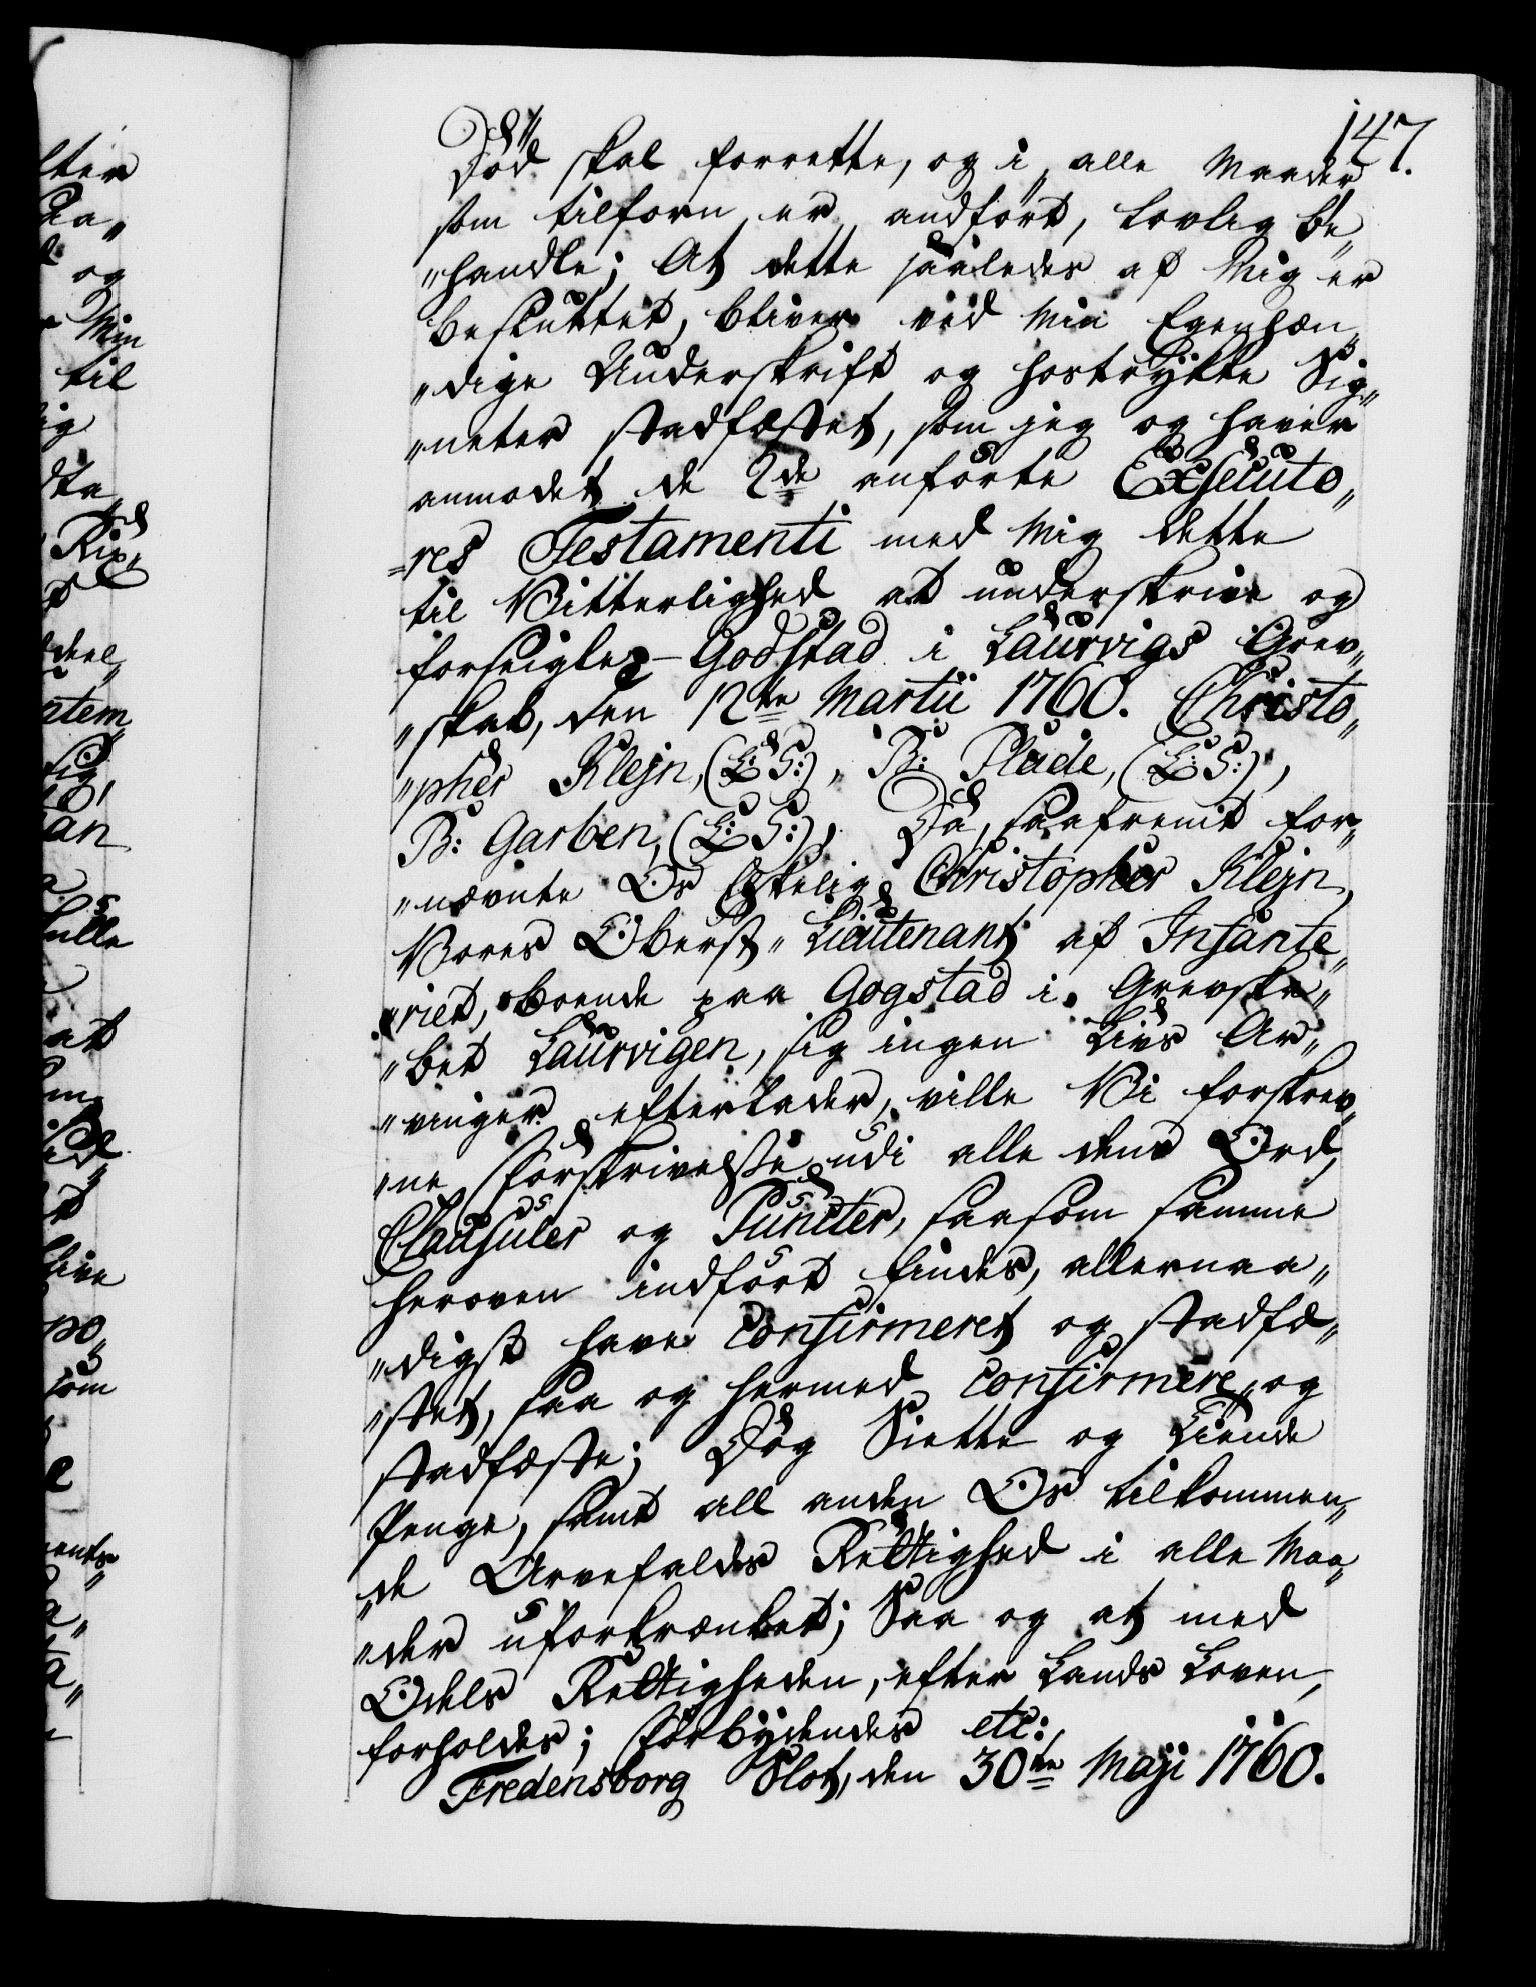 147.
Död skal forrette, og i alle Maader
som tilforn er andfört, lovlig be„
„handle; At dette saaledes af Mig er
besluttet, bliver ved Min Egenhæn„
„dige Underskrift og hostrÿkte Sig„
„neter stadfæstet, som jeg og haver
anmodet de 2de anförte Exsecuto„
„res Testamenti med Mig dette
til Vitterlighed at underskrive og
forseigle. Godstad i Laurvigs Grev„
„skab, den 12te Martii 1760. Christo„
„pher Klejn, (L: S:), B: Plade, (L: S:),
B: Garben, (L: S:), Da, saafremt for„
„nævnte Os Elskelig Christopher Klejn,
Vores Oberst„Lieutenant af Infante„
„riet, boende paa Gogstad i Grevska„
„bet Laurvigen, sig ingen Livs Ar„
„vinger efterlader, ville Vi forskrev„
„ne Forskrivelse udi alle dens Ord,
Clausuler og Puncter, saasom samme
heroven indfört findes, allernaa„
„digst have confirmeret og stadfæ„
„stet, saa og hermed confirmere og
stadfæste; Dog Siette og Tiende
Penge, samt all anden Os tilkommen„
„de Arvefalds Rettighed i alle Maa„
„der uforkrænket; Saa og at med
Odels Rettigheden, efter Lands Loven,
forholdes; Forbÿdendes etc:
Fredensborg Slot, den 30te Maji 1760.